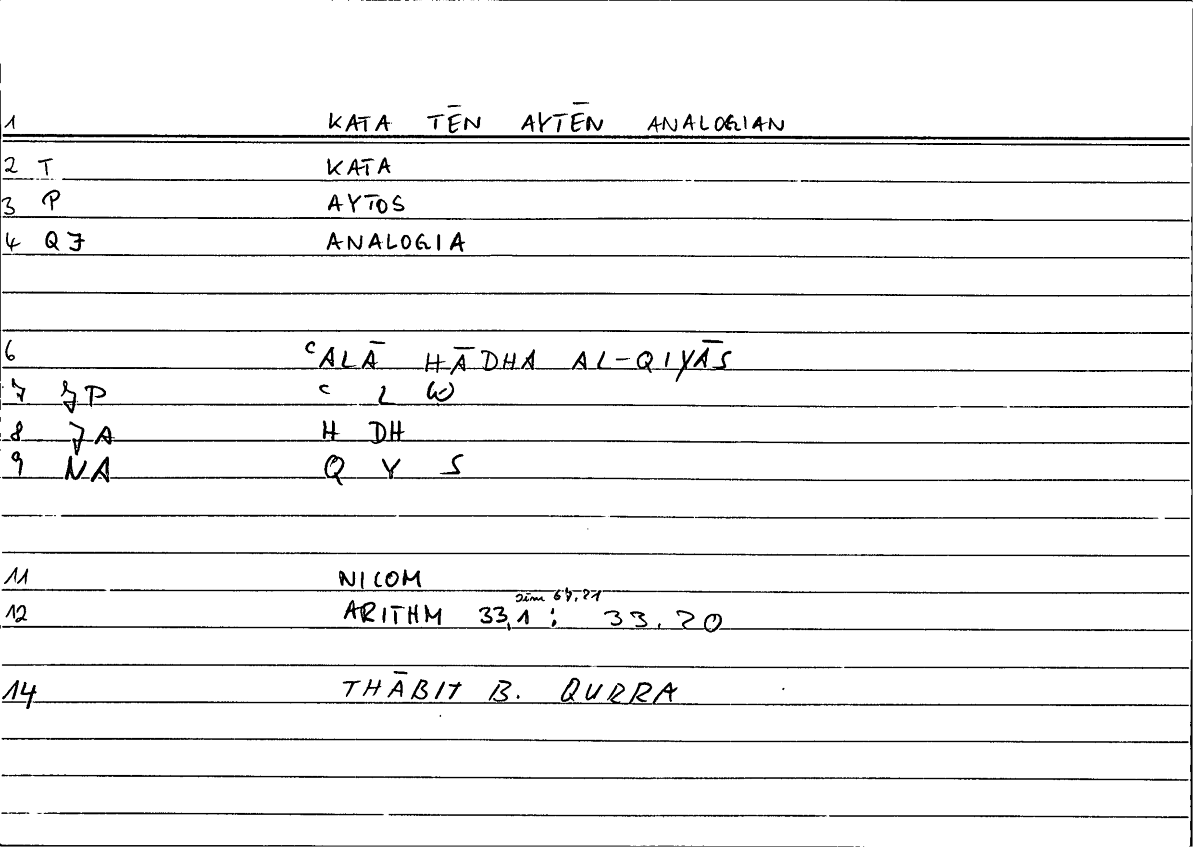 1 KATA TĒN AYTĒN ANALOGIAN
2 T KATA
3 P AYTOS
4 QJ ANALOGIA
6 ʿALĀ HĀDHA AL-QIYĀS
7 JP ʿ L W
8 JA H DH
9 NA Q Y S
11 NICOM
12 ARITHM 33,1 : 33.20
14 THĀBIT B. QURRA